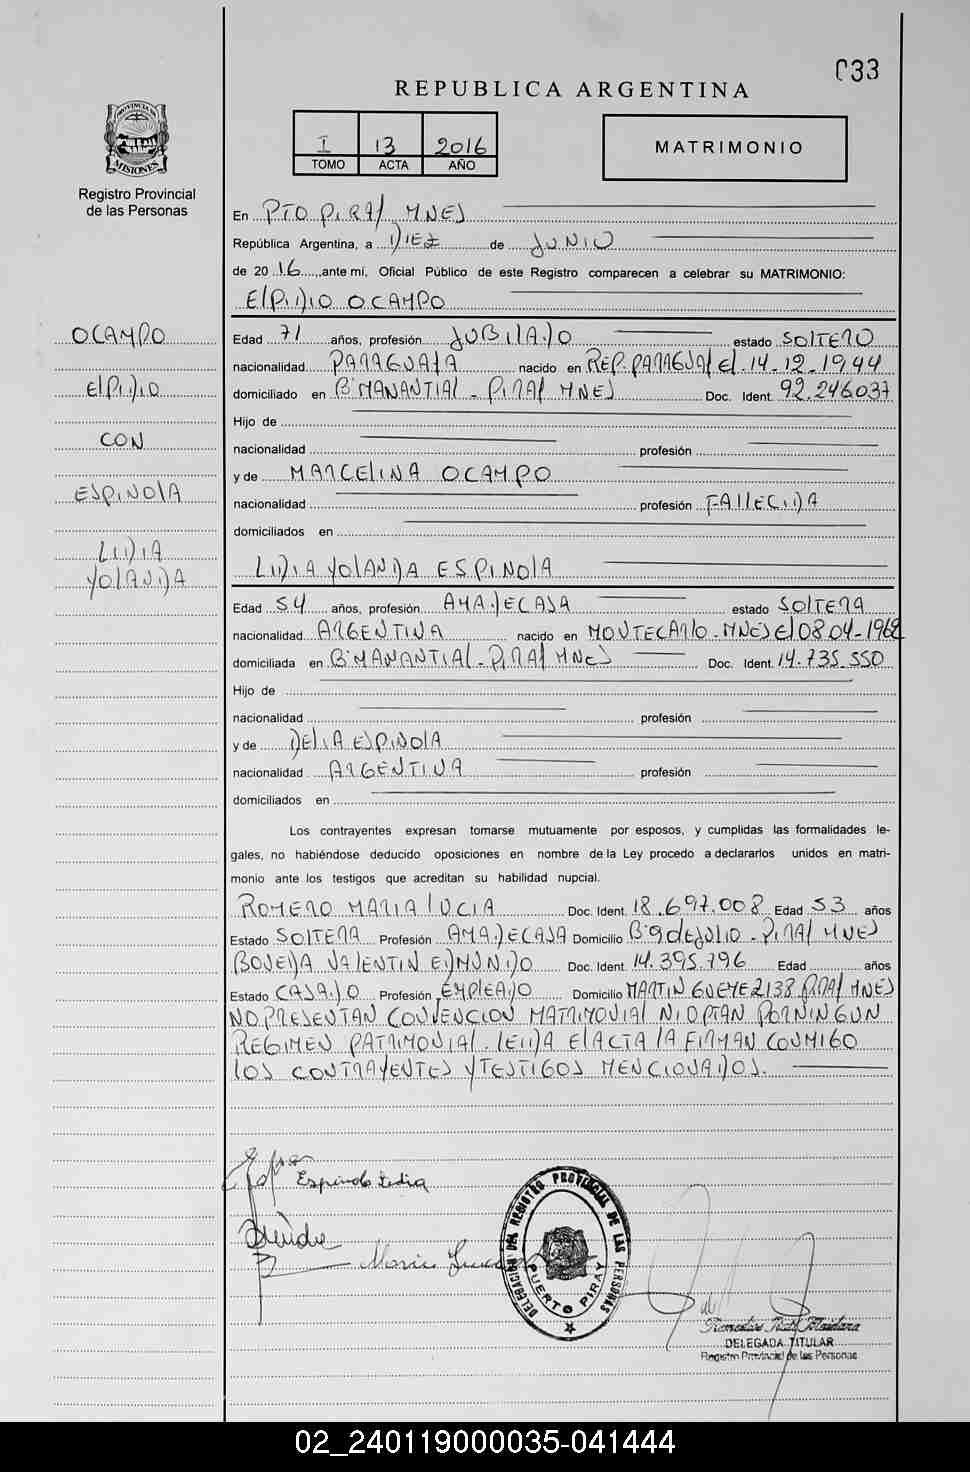 033
REPUBLICA ARGENTINA
PROVINCIA DE
MISIONES
Registro Provincial
de las Personas
I 13 2016
TOMO ACTA AÑO
MATRIMONIO
En PTO PIRAY MNES
República Argentina, a DIEZ de JUNIO
de 20 16, ante mí, Oficial Público de este Registro comparecen a celebrar su MATRIMONIO:
ElPIDIO OCAMPO
OCAMPO
ElPIDIO
CON
ESPINOlA
LIDIA
YOlANDA
Edad 71 años, profesión JUBIlADO estado SOlTERO
nacionalidad PARAGUAYA nacido en REP. PARAGUAY El 14-12-1944
domiciliado en Bº MANANTIAl - PIRAY MNES Doc. Ident. 92.246.037
Hijo de
nacionalidad profesión
y de MARCElINA OCAMPO
nacionalidad profesión FAllECIDA
domiciliados en
LIDIA YOlANDA ESPINOlA
Edad 54 años, profesión AMA DE CASA estado SOlTERA
nacionalidad ARGENTINA nacido en MONTECARlO-MNES El 08-04-1962
domiciliada en Bº MANANTIAl - PIRAY MNES Doc. Ident. 14.735.550
Hijo de
nacionalidad profesión
y de DElIA ESPINOlA
nacionalidad ARGENTINA profesión
domiciliados en
Los contrayentes expresan tomarse mutuamente por esposos, y cumplidas las formalidades le-
gales, no habiéndose deducido oposiciones en nombre de la Ley procedo a declararlos unidos en matri-
monio ante los testigos que acreditan su habilidad nupcial.
ROMERO MARIA lUCIA Doc. Ident. 18.697.008 Edad 53 años
Estado SOlTERA Profesión AMA DE CASA Domicilio Bº 9 DE JUlIO - PIRAY MNES
BOVEDA VAlENTIN EDMUNDO Doc. Ident. 14.395.796 Edad años
Estado CASADO Profesión EMPlEADO Domicilio MARTIN GUEMEZ 138 PIRAY MNES
NO PRESENTAN CONVENCION MATRIMONIAl NI OPTAN POR NINGUN
REGIMEN PATRIMONIAl. lEIDA El ACTA lA FIRMAN CONMIGO
lOS CONTRAYENTES Y TESTIGOS MENCIONADOS.
Espinola Lidia
Maria
DELEGACION DEL REGISTRO PROVINCIAL DE LAS PERSONAS
PUERTO PIRAY
DELEGADA TITULAR
Registro Provincial de las Personas
02_240119000035-041444